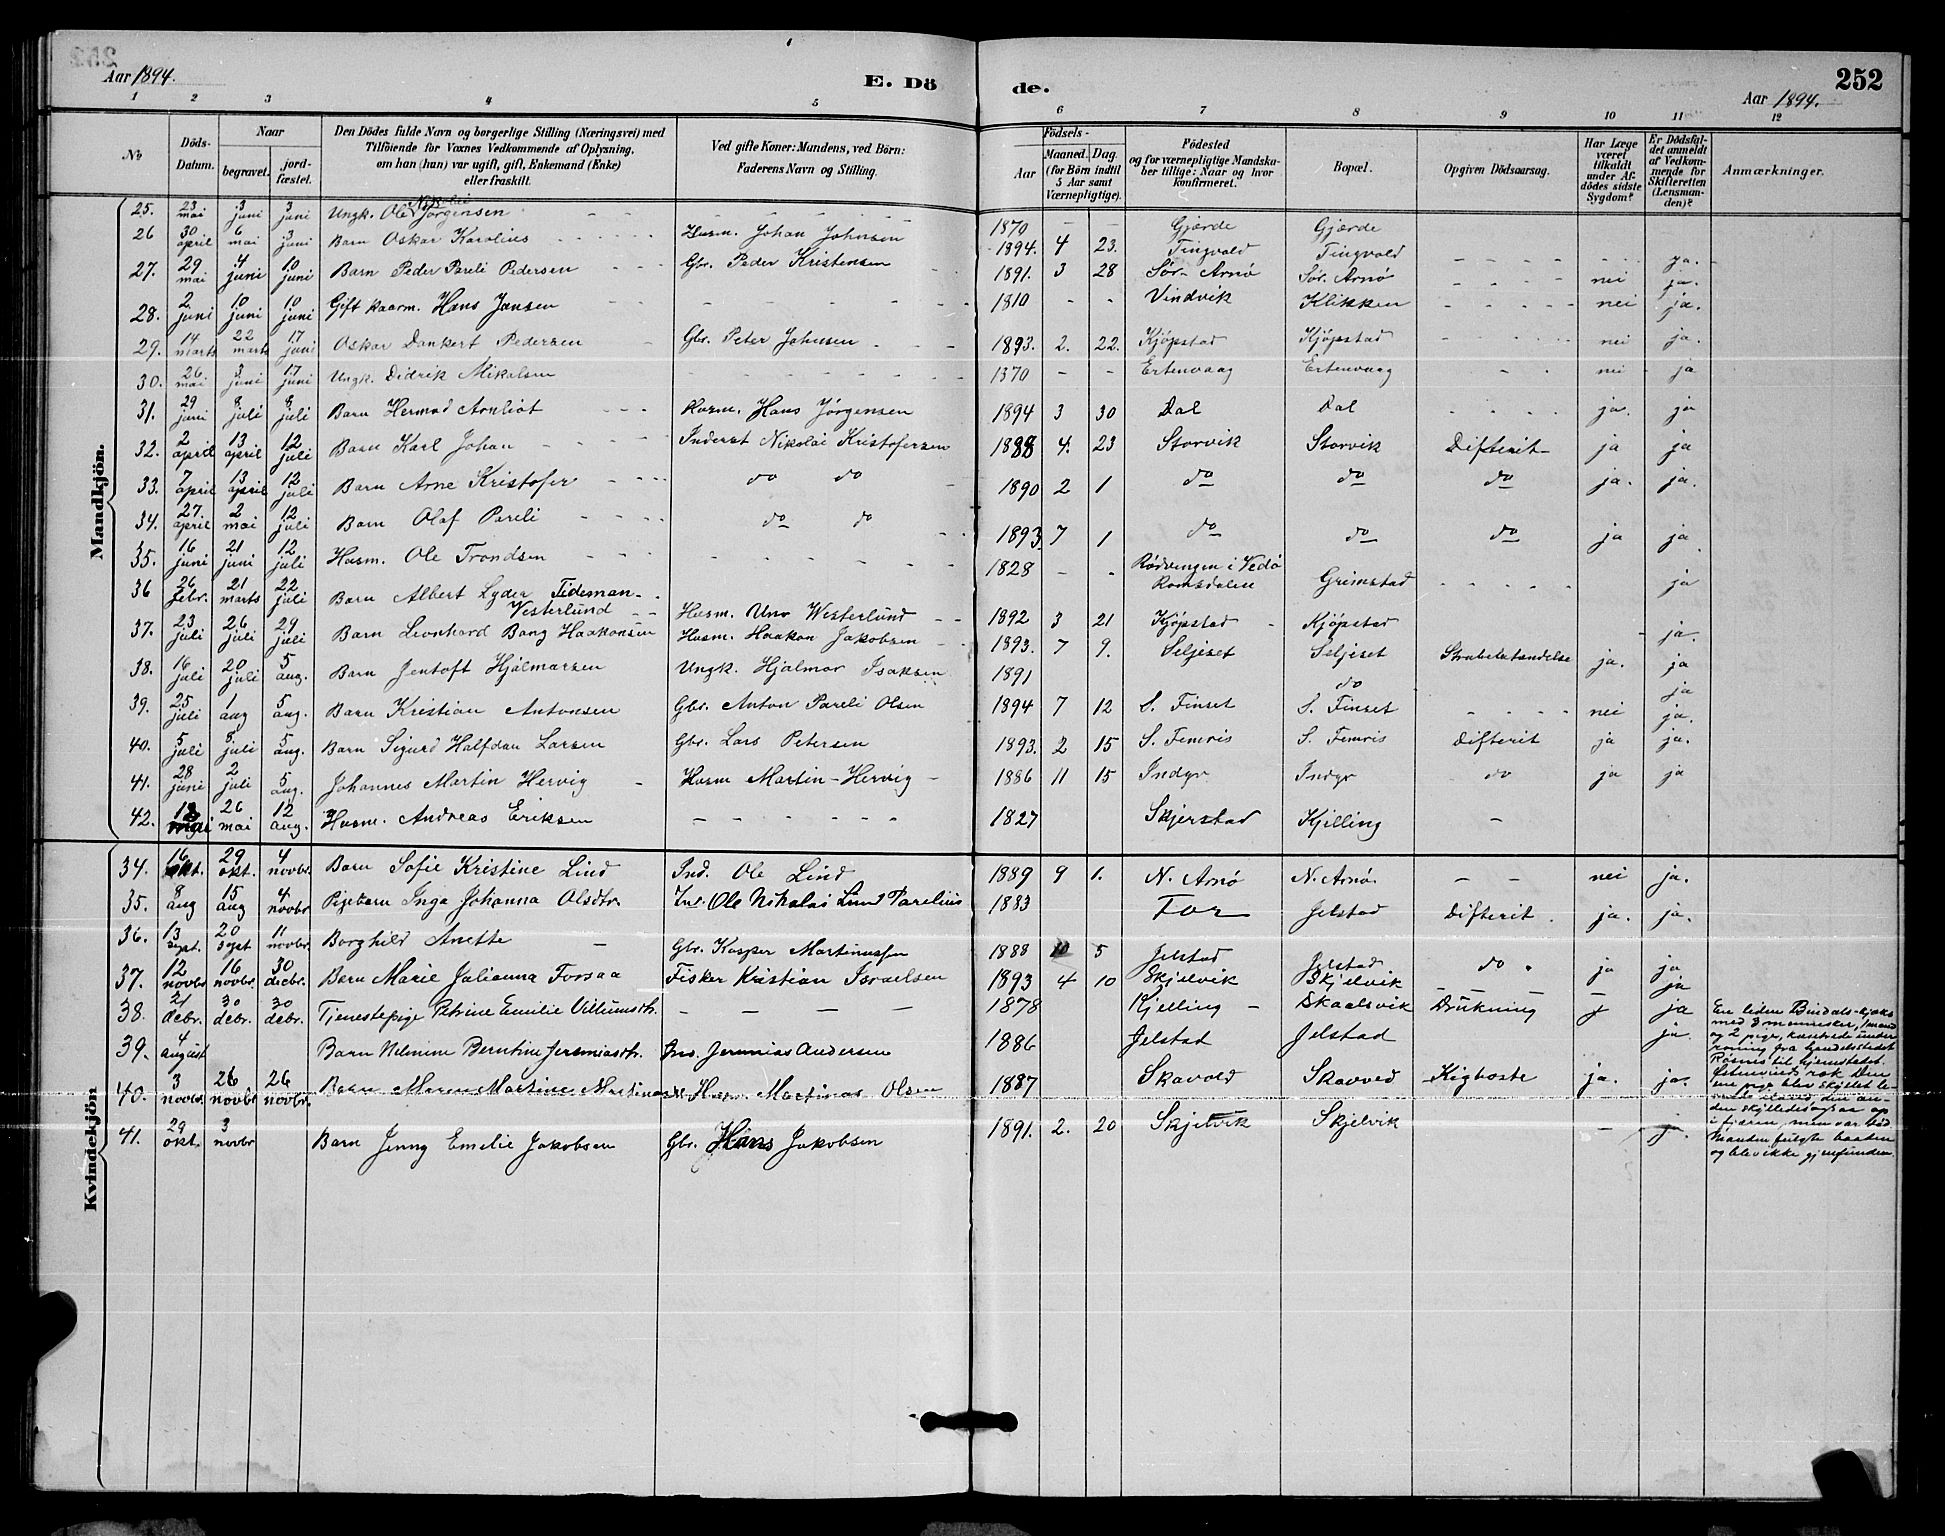 252
Aar 1894.
E. Dö de.
Aar 1894.
1 2 3 4 5 6 7 8 9 10 11 12
No
Döds-Datum.
Naar
begravet.
jord-fæstet.
Den Dödes fulde Navn og borgerlige Stilling (Næringsvei) med
Tilföiende for Voxnes Vedkommende af Oplysning,
om han (hun) var ugift, gift, Enkemand (Enke)
eller fraskilt.
Ved gifte Koner: Mandens, ved Börn:
Faderens Navn og Stilling.
Födsels-
Aar
Maaned. Dag.
(for Börn indtil
5 Aar samt
Værnepligtige).
Födested
og for værnepligtige Mandska-
ber tillige: Naar og hvor
konfirmeret.
Bopæl.
Opgiven Dödsaarsag.
Har Læge
været
tilkaldt
under Af-
dödes sidste
Sygdom?
Er Dödsfal-
det anmeldt
af Vedkom-
mende for
Skifteretten
(Lensman-
den)?
Anmærkninger.
Mandkjön.
25. 23 mai 3 juni 3 juni Ungk. Ole Nikolai Jørgensen - - 1870 - - Gjærde Gjærde
26 30 april 6 mai 3 juni Barn Oskar Karolius Husm. Johan Johnsen 1894. 4 23. Tingvold Tingvold ja.
27. 29 mai 4 juni 10 juni Barn Peder Pareli Pedersen Gbr. Peder Kristensen 1891. 3 28 Sør-Arnø Sør. Arnø nei ja.
28. 2 juni 10 juni 10 juni Gift kaarm. Hans Jansen 1810 - - Vindvik Klikken nei ja.
29. 14 marts 22 marts 17 juni Oskar Dankert Pedersen Gbr. Peter Johnsen 1893. 2. 22. Kjøpstad Kjøpstad nei ja.
30. 26 mai 3 juni 17 juni Ungk. Didrik Mikalsen 1870 - - Ertenvaag Ertenvaag nei ja
31. 29 juni 8 juli 8 juli Barn Hermod Arnliot Husm. Hans Jørgensen 1894 3 30 Dal Dal ja. ja
32. 2 april 13 april 12 juli Barn Karl Johan Inderst Nikolai Kristofersen 1888 4. 23 Storvik Storvik Difterit ja ja
33. 7 april 13 april 12 juli Barn Arne Kristofer do do 1890 2 1 do do do ja. ja.
34. 27. april 2 mai 12 juli Barn Olaf Pareli do do 1893 7 1 do do do ja ja.
35. 16 juni 21 juni 12 juli Husm. Ole Trondsen 1828 - - Rødvengen i Vedø Romsdalen Grimstad ja
36 26 febr. 21 marts 22 juli Barn Albert Lyder Tideman Vesterlund Husm. Uno Westerlund 1892 3 21 Kjøpstad Kjøpstad - ja.
37. 23 juli 26 juli 29 juli Barn Leonhard Bang Haakonsen Husm. Haakon Jakobsen 1893. 7 9. Seljeset Seljeset Strubebetændelse ja. ja
38. 16 juli 20 juli 5 aug. Barn Jentoft Hjalmarsen Ungk. Hjalmar Isaksen 1891 do ja
39. 25 juli 1 aug 5 aug. Barn Kristian Antonsen Gbr. Anton Pareli Olsen 1894 7 12 S. Finset S. Finset nei ja.
40. 5 juli 8. juli 5 aug. Barn Sigurd Halfdan Larsen Gbr. Lars Petersen 1893. 2 15 S. Femris S. Femris Difterit ja ja.
41. 28 juni 2 juli 5 aug. Johannes Martin Hervig Husm Martin Hervig 1886 11 15 Indyr Indyr do ja ja
42. 18 mai 26 mai 12 aug. Husm. Andreas Eriksen 1827 Skjerstad Kjelling -
Kvindekjön
34. 16 okt. 29 okt. 4 novbr. Barn Sofie Kristine Lind Ind. Ole Lind 1889 9 1. N. Arnø N. Arnø. - - nei ja.
35. 8 aug 15 aug 4 novbr Pigebarn Inga Johanna Olsdtr. Ind. Ole Nikolai Lund Parelius 1883 For Jelstad Difterit. ja. ja.
36. 13 sept. 20 sept 11 novbr. Borghild Anette Gbr. Kasper Martinussen 1888 10 5 Jelstad Jelstad do ja ja
37. 12 novbr 16 novbr. 30 decbr. Barn Marie Julianna Forsaa Fisker Kristian Israelsen 1893 4 10 Skjelvik Skjelvik - - ja
38. 21 debr. 30 debr. 30 debr. Tjenestepige Petrine Emilie Villumsdtr. 1878 Kjelling Skaalsvik Drukning ja
39. 4 august Barn Nelmine Berntine Jeremiasdtr. Ins. Jeremias Andersen 1886 Jelstad Jelstad ja.
40. 3 novbr. 26 novbr 26 novbr. Barn Maren Martine Martinusd. Husm. Martinus Olsen 1887 Skavold Skavved Kighoste ja. ja.
41. 29 okt. 3 novbr Barn Jenny Emelie Jakobsen Gbr. Hans Jakobsen 1891. 2. 20 Skjelvik Skjelvik - j.
En liden Bindals-kjeks
med 3 mennesker, 1 mand
og 2 piger, kantrede under
roning fra handelsstedet
Røsnes til hjemstedet.
Østenvinds rok. Den
ene pige blev skyllet
den an-
den skylledes ogsaa op
i fjæren, men var død
Manden fulgte baaten
og blev ikke gjenfunden.